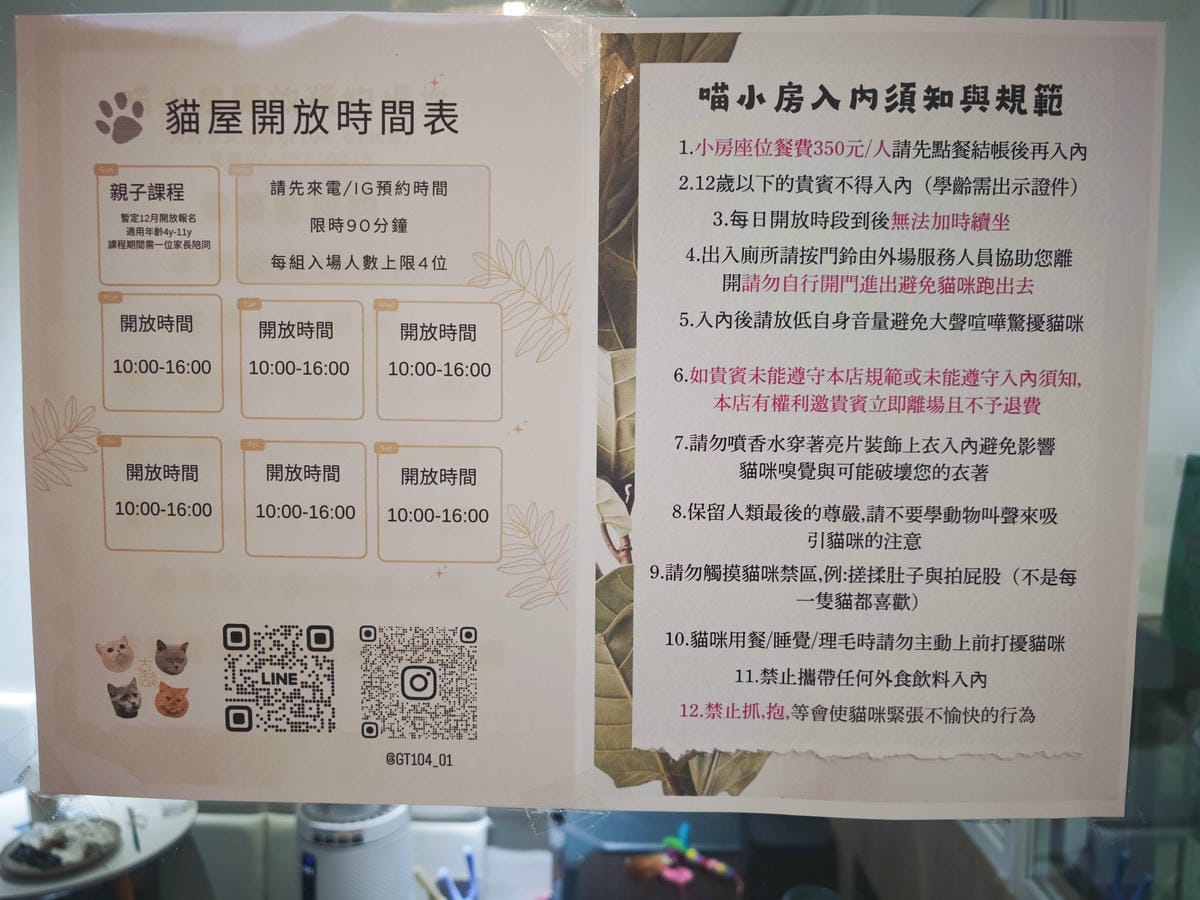 貓屋開放時間表
Sun
親子課程
暫定12月開放報名
適用年齡4y-11y
課程期間需一位家長陪同
請先來電/IG預約時間
限時90分鐘
每組入場人數上限4位
Mon
開放時間
10:00-16:00
Tue
開放時間
10:00-16:00
Wed
開放時間
10:00-16:00
Thu
開放時間
10:00-16:00
Fri
開放時間
10:00-16:00
開放時間
10:00-16:00
古
談
LINE
@GT104_01
喵小房入內須知與規範
1.小房座位餐費350元/人請先點餐結帳後再入內
2.12歲以下的貴賓不得入內（學齡需出示證件）
3.每日開放時段到後無法加時續坐
4.出入廁所請按門鈴由外場服務人員協助您離
開請勿自行開門進出避免貓咪跑出去
5.入內後請放低自身音量避免大聲喧嘩驚擾貓咪
6.如貴賓未能遵守本店規範或未能遵守入內須知,
本店有權利邀貴賓立即離場且不予退費
7.請勿噴香水穿著亮片裝飾上衣入內避免影響
貓咪嗅覺與可能破壞您的衣著
8.保留人類最後的尊嚴,請不要學動物叫聲來吸
引貓咪的注意
9.請勿觸摸貓咪禁區,例:搓揉肚子與拍屁股（不是每
一隻貓都喜歡）
10.貓咪用餐/睡覺/理毛時請勿主動上前打擾貓咪
11.禁止攜帶任何外食飲料入內
12.禁止抓,抱,等會使貓咪緊張不愉快的行為